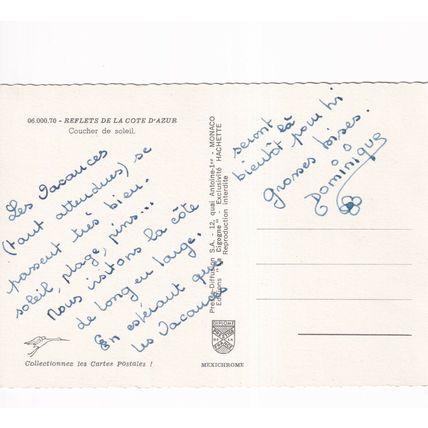 06.000.70 - REFLETS DE LA COTE D'AZUR
Coucher de soleil.
Les Vacances
(tant attendues) se
passent très bien.
soleil, plage, pins...
Nous visitons la côte
de long en large.
En espérant que
les Vacances
seront là
bientôt pour toi
Grosses bises.
Dominique
Presse-Diffusion S.A. - 12, quai Antoine-1er - MONACO
Editions "La Cigogne" - Exclusivité HACHETTE
Reproduction interdite
Collectionnez les Cartes Postales !
MEXICHROME